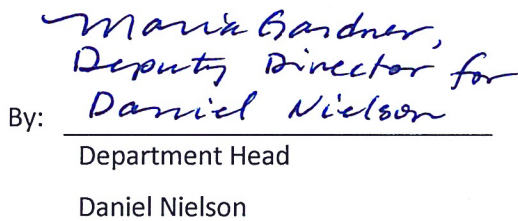 Maria Gardner,
Deputy Director for
By: Daniel Nielson
Department Head
Daniel Nielson